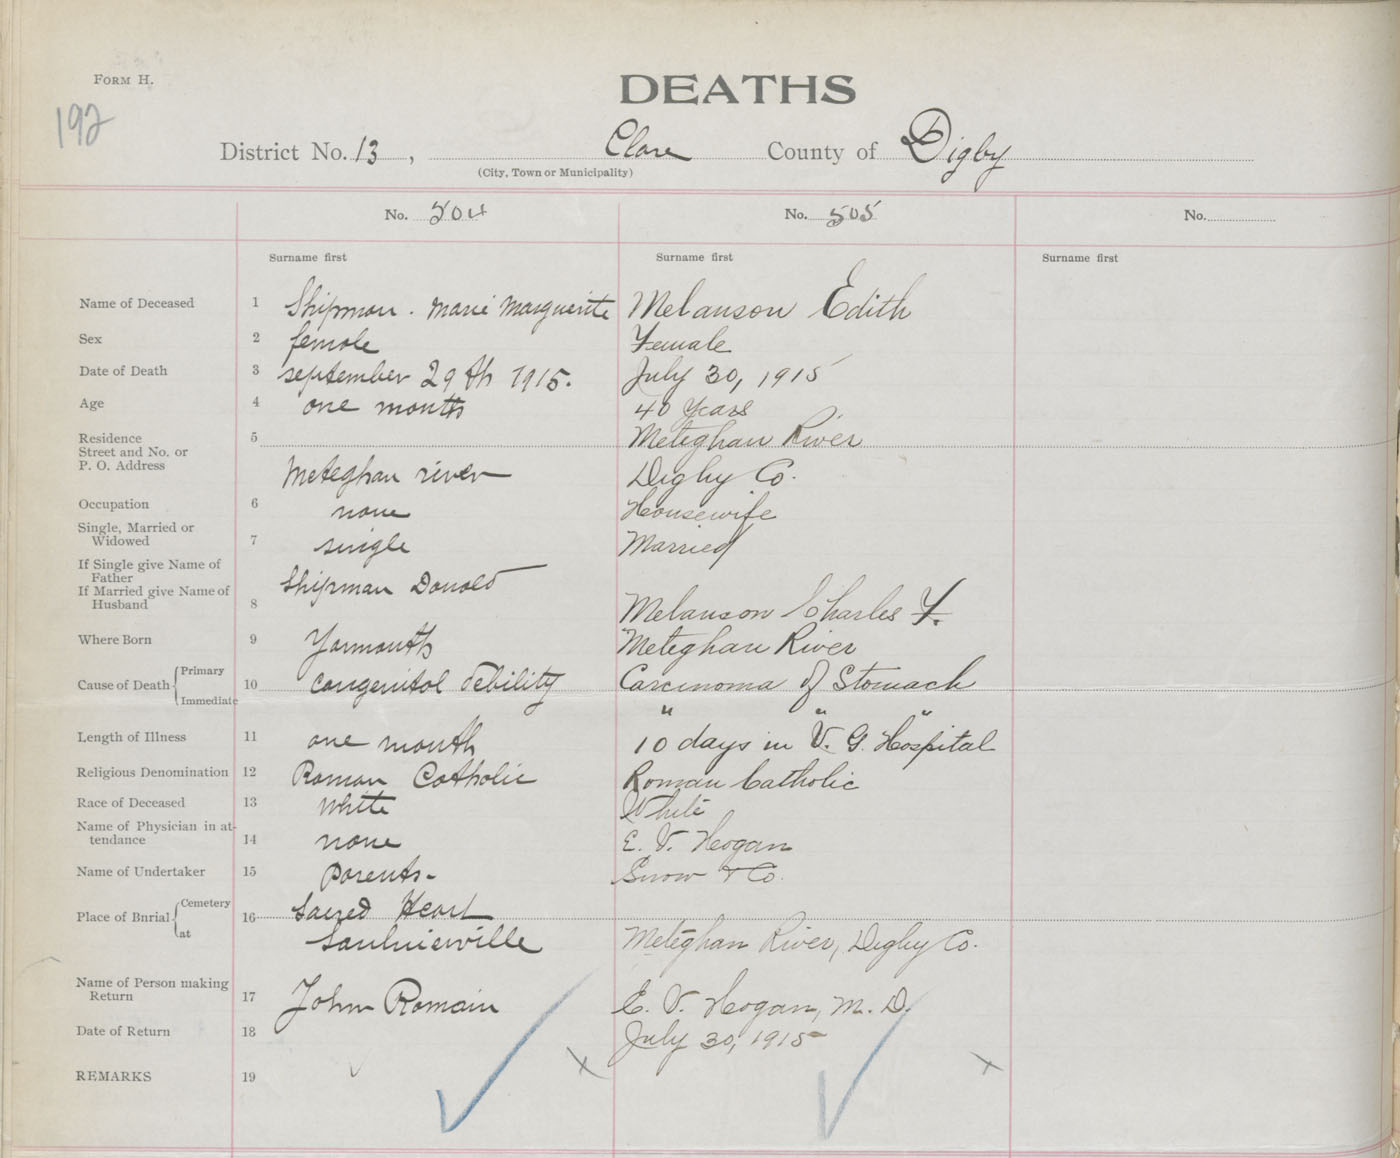 FORM H.
192
DEATHS
District No. 13, Clare County of Digby
(City, Town or Municipality)
No. 504 No. 505 No.
Surname first Surname first Surname first
Name of Deceased 1 Shipman. Marie Marguerite Melanson Edith
Sex 2 female Female
Date of Death 3 september 29th 1915. July 30, 1915
Age 4 one months 40 Years
Residence 5 Meteghan River
Street and No. or
P. O. Address Meteghan river Digby Co.
Occupation 6 none Housewife
Single, Married or
Widowed 7 single Married
If Single give Name of
Father Shipman Donald
If Married give Name of
Husband 8 Melanson Charles F.
Where Born 9 Yarmouth Meteghan River
Cause of Death Primary 10 congenitol debility Carcinoma of Stomach
Immediate " " "
Length of Illness 11 one month 10 days in V. G. Hospital
Religious Denomination 12 Roman Catholic Roman Catholic
Race of Deceased 13 white White
Name of Physician in at-
tendance 14 none E. V. Hogan
Name of Undertaker 15 parents- Snow & Co.
Place of Burial Cemetery 16 Sacred Heart
at Saulnierville Meteghan River, Digby Co.
Name of Person making
Return 17 John Romain E. V. Hogan, M. D.
Date of Return 18 July 30, 1915
REMARKS 19